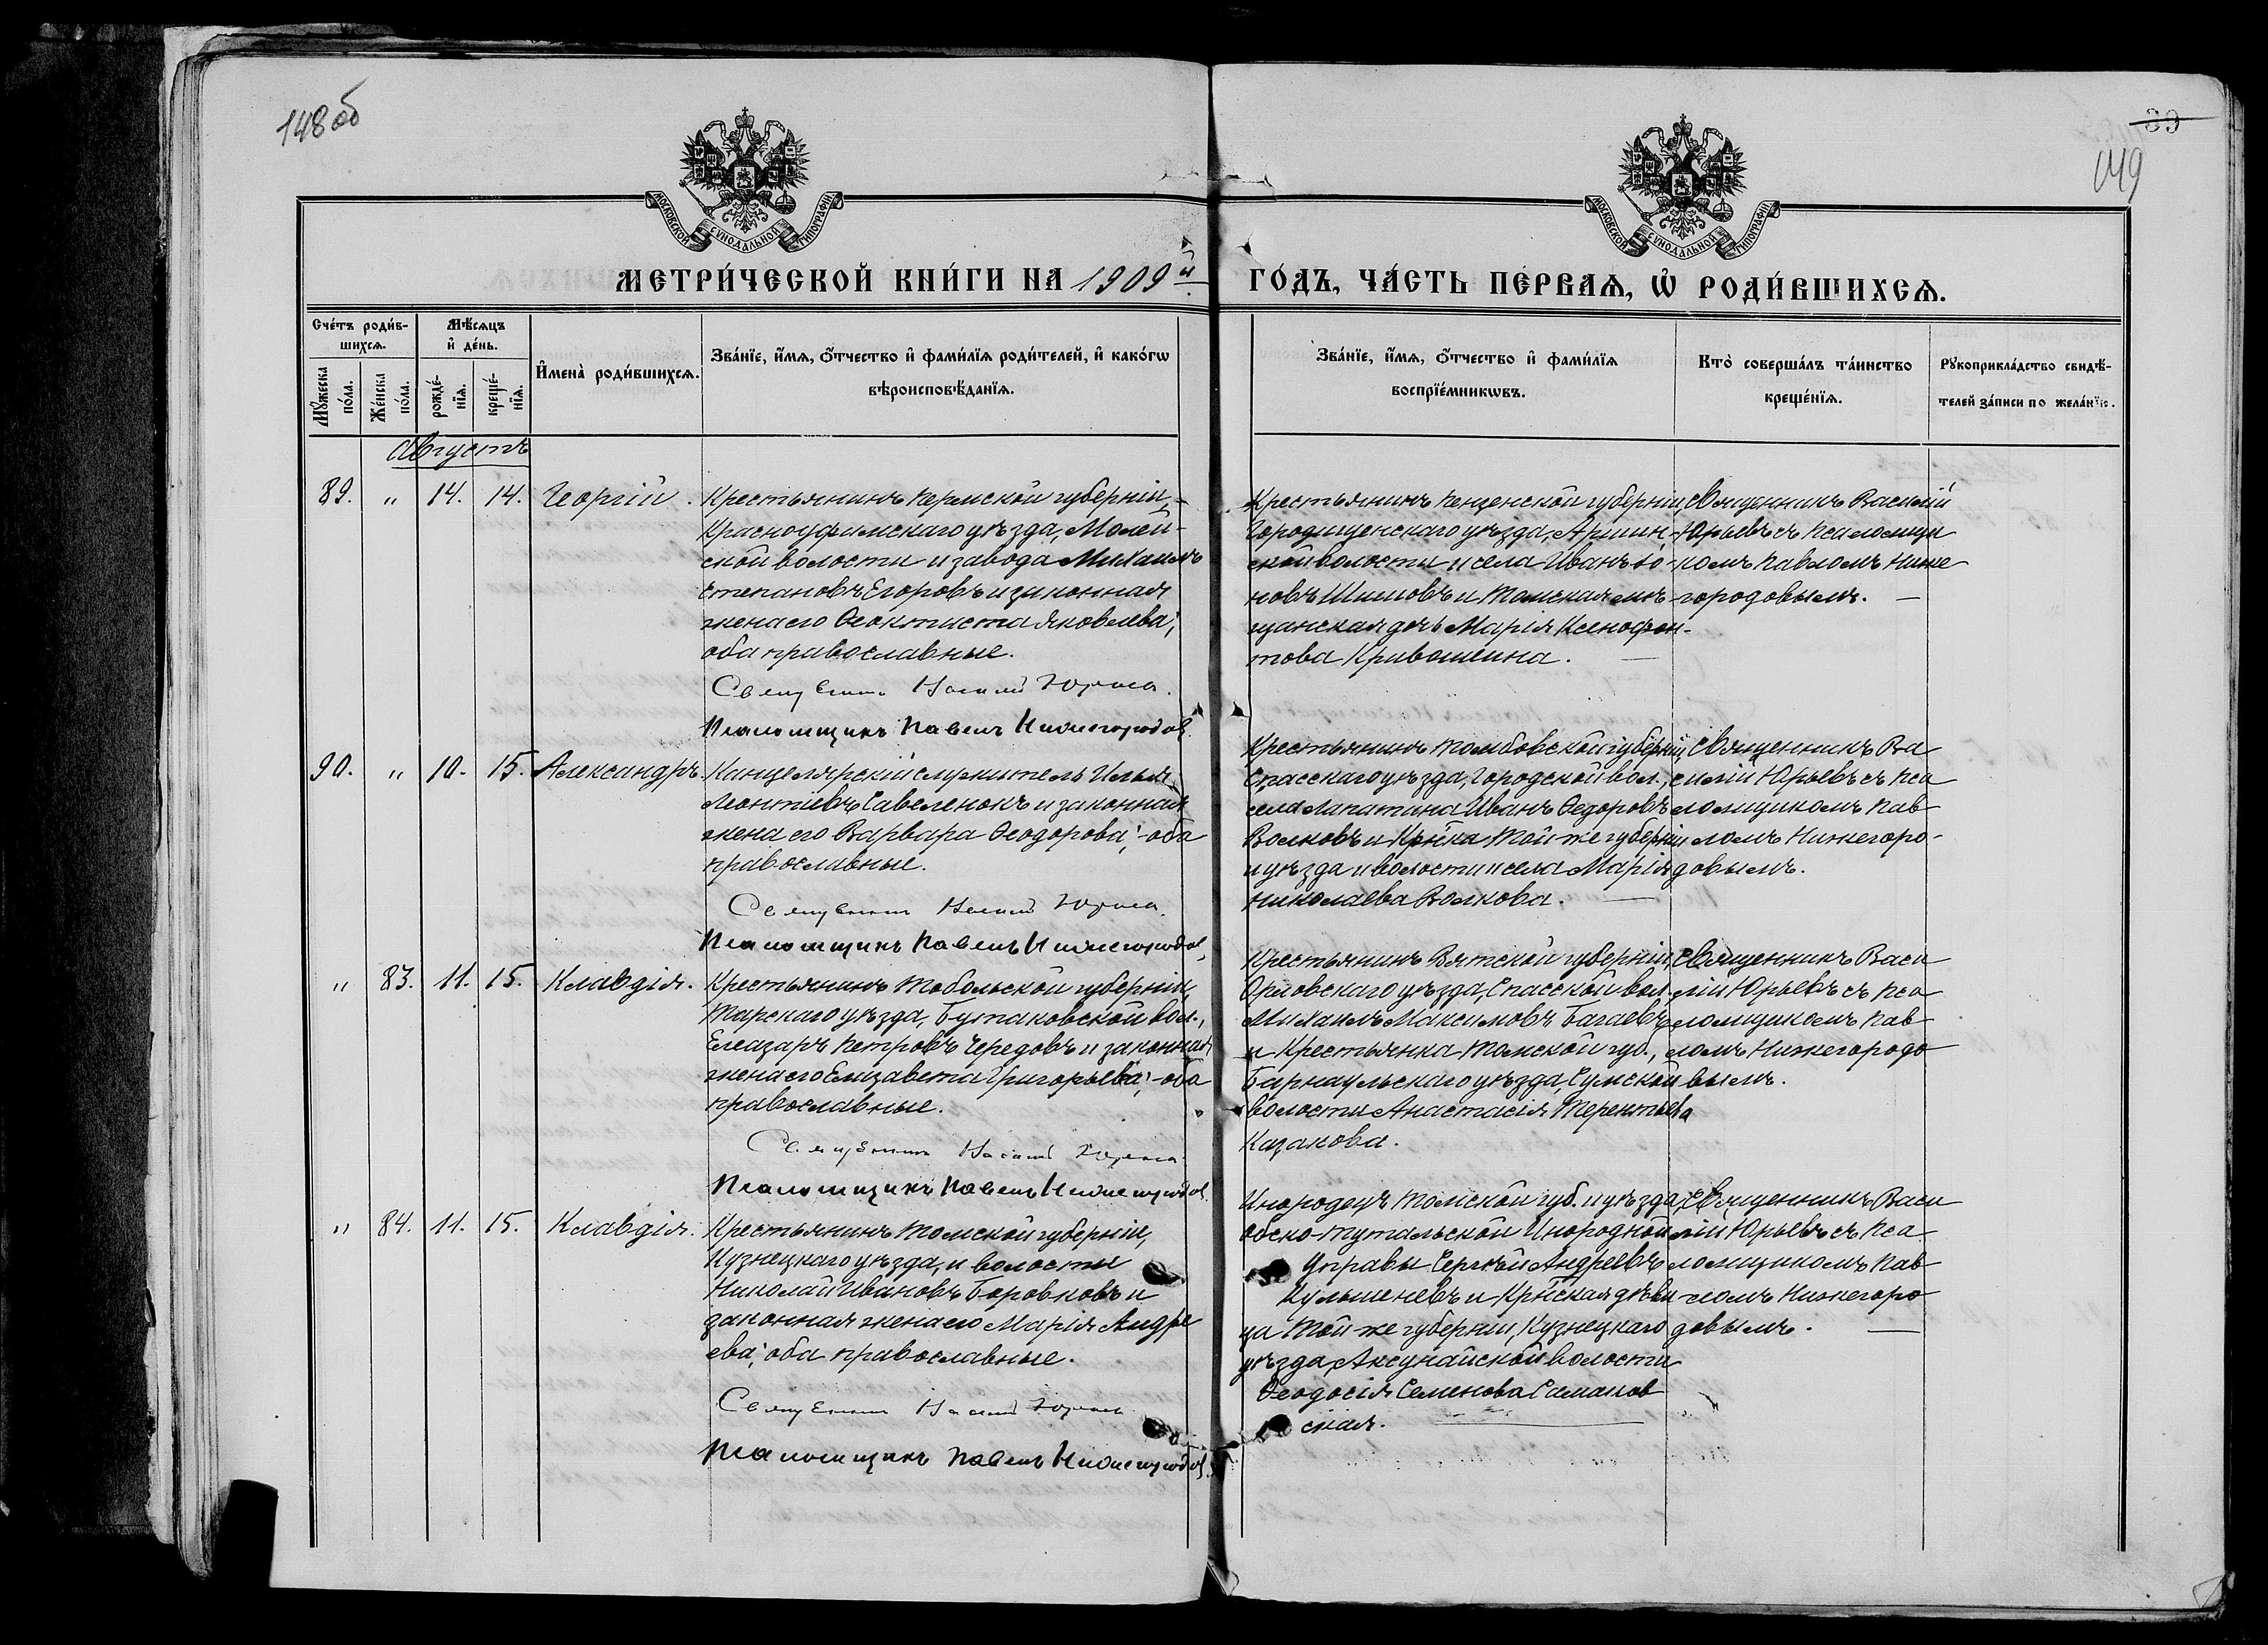 148 об
39
149
МОСКОВСКОЙ СѴНОДАЛЬНОЙ ТИПОГРАФІИ
МОСКОВСКОЙ СѴНОДАЛЬНОЙ ТИПОГРАФІИ
МЕТРИ́ЧЕСКОЙ КНИ́ГИ НА 1909й
ГО́ДЪ, ЧА́СТЬ ПЕ́РВАѦ, Ѡ҆ РОДИ́ВШИХСѦ.
Сче́тъ роди́в-
шихсѧ.
Мꙋ́жеска по́ла.
Же́нска по́ла.
Мѣ́сѧцъ
и҆ де́нь.
рожде́-нїѧ.
креще́-нїѧ.
И҆мена̀ роди́вшихсѧ.
Зва́нїе, и҆́мѧ, ѻ҆́тчество и҆ фами́лїѧ роди́телей, и҆ како́гѡ
вѣроисповѣ́данїѧ.
Зва́нїе, и҆́мѧ, ѻ҆́тчество и҆ фами́лїѧ
воспрїе́мникѡвъ.
Кто̀ соверша́лъ та́инство
креще́нїѧ.
Рꙋкоприкла́дство свидѣ́-
телей за́писи по жела́нїю.
Августъ
89. " 14. 14. Георгій.
Крестьянинъ Пермской губерніи,
Красноуфимскаго уѣзда, Молеб-
ской волости и завода Михаилъ
Степановъ Егоровъ и законная
жена его Ѳеоктиста Яковлева;
оба православные.
Священникъ Василій Юрьевъ.
Псаломщикъ Павелъ Нижегородов
Крестьянинъ Пензенской губерніи,
Городищенскаго уѣзда,
ской волости и села Иванъ
новъ Шишовъ и Томская мѣ-
щанская дочь Марія Ксенофон-
това Кривошеина.
Священникъ Василій
Юрьевъ съ псаломщи
комъ Павломъ Ниже
городовымъ.
90. " 10. 15. Александръ.
Канцелярскій служитель Илья
Леонтіевъ Савеленокъ и законная
жена его Варвара Ѳеодорова; оба
православные.
Священникъ Василій Юрьевъ.
Псаломщикъ Павелъ Нижегородов
Крестьянинъ Тамбовской губерніи,
Спасскаго уѣзда, Городской вол.,
села Лапатина Иванъ Ѳедоровъ
Волковъ и Кр–нка той же губерніи
и уѣзда и волости и села Марія
Николаева Волкова.
Священникъ Ва
силій Юрьевъ съ пса
ломщикомъ Пав
ломъ Нижегоро-
довымъ.
" 83. 11. 15. Клавдія.
Крестьянинъ Тобольской губерніи,
Тарскаго уѣзда, Бутаковской вол.,
Елеазаръ Петровъ Чередовъ и законная
жена его Елизавета Григорьева; оба
православные.
Священникъ Василій Юрьевъ
Псаломщикъ Павелъ Нижегородов
Крестьянинъ Вятской губерніи,
Орловскаго уѣзда, Спасской вол.
Михаилъ Максимовъ Багаевъ
и Крестьянка Томской губ.,
Барнаульскаго уѣзда, Сумской
волости Анастасія Терентьева
Казакова.
Священникъ Васи
лій Юрьевъ съ пса
ломщикомъ Пав
ломъ Нижегородо
вымъ.
" 84. 11. 15. Клавдія.
Крестьянинъ Томской губерніи,
Кузнецкаго уѣзда, и волости
Николай Ивановъ Боровковъ и
законная жена его Марія Андре
ева; оба православные.
Священникъ Василій Юрьевъ
Псаломщикъ Павелъ Нижегородов
Инородецъ Томской губ. и уѣзда,
Обско-Тутальской Инородной
Управы Сергѣй Андреевъ
Кульменевъ и Кр–нская дѣви
ца той же губерніи, Кузнецкаго
уѣзда, волости
Ѳеодосія Семенова
ская.
Священникъ Васи
лій Юрьевъ съ пса
ломщикомъ Пав
ломъ Нижегоро
довымъ.